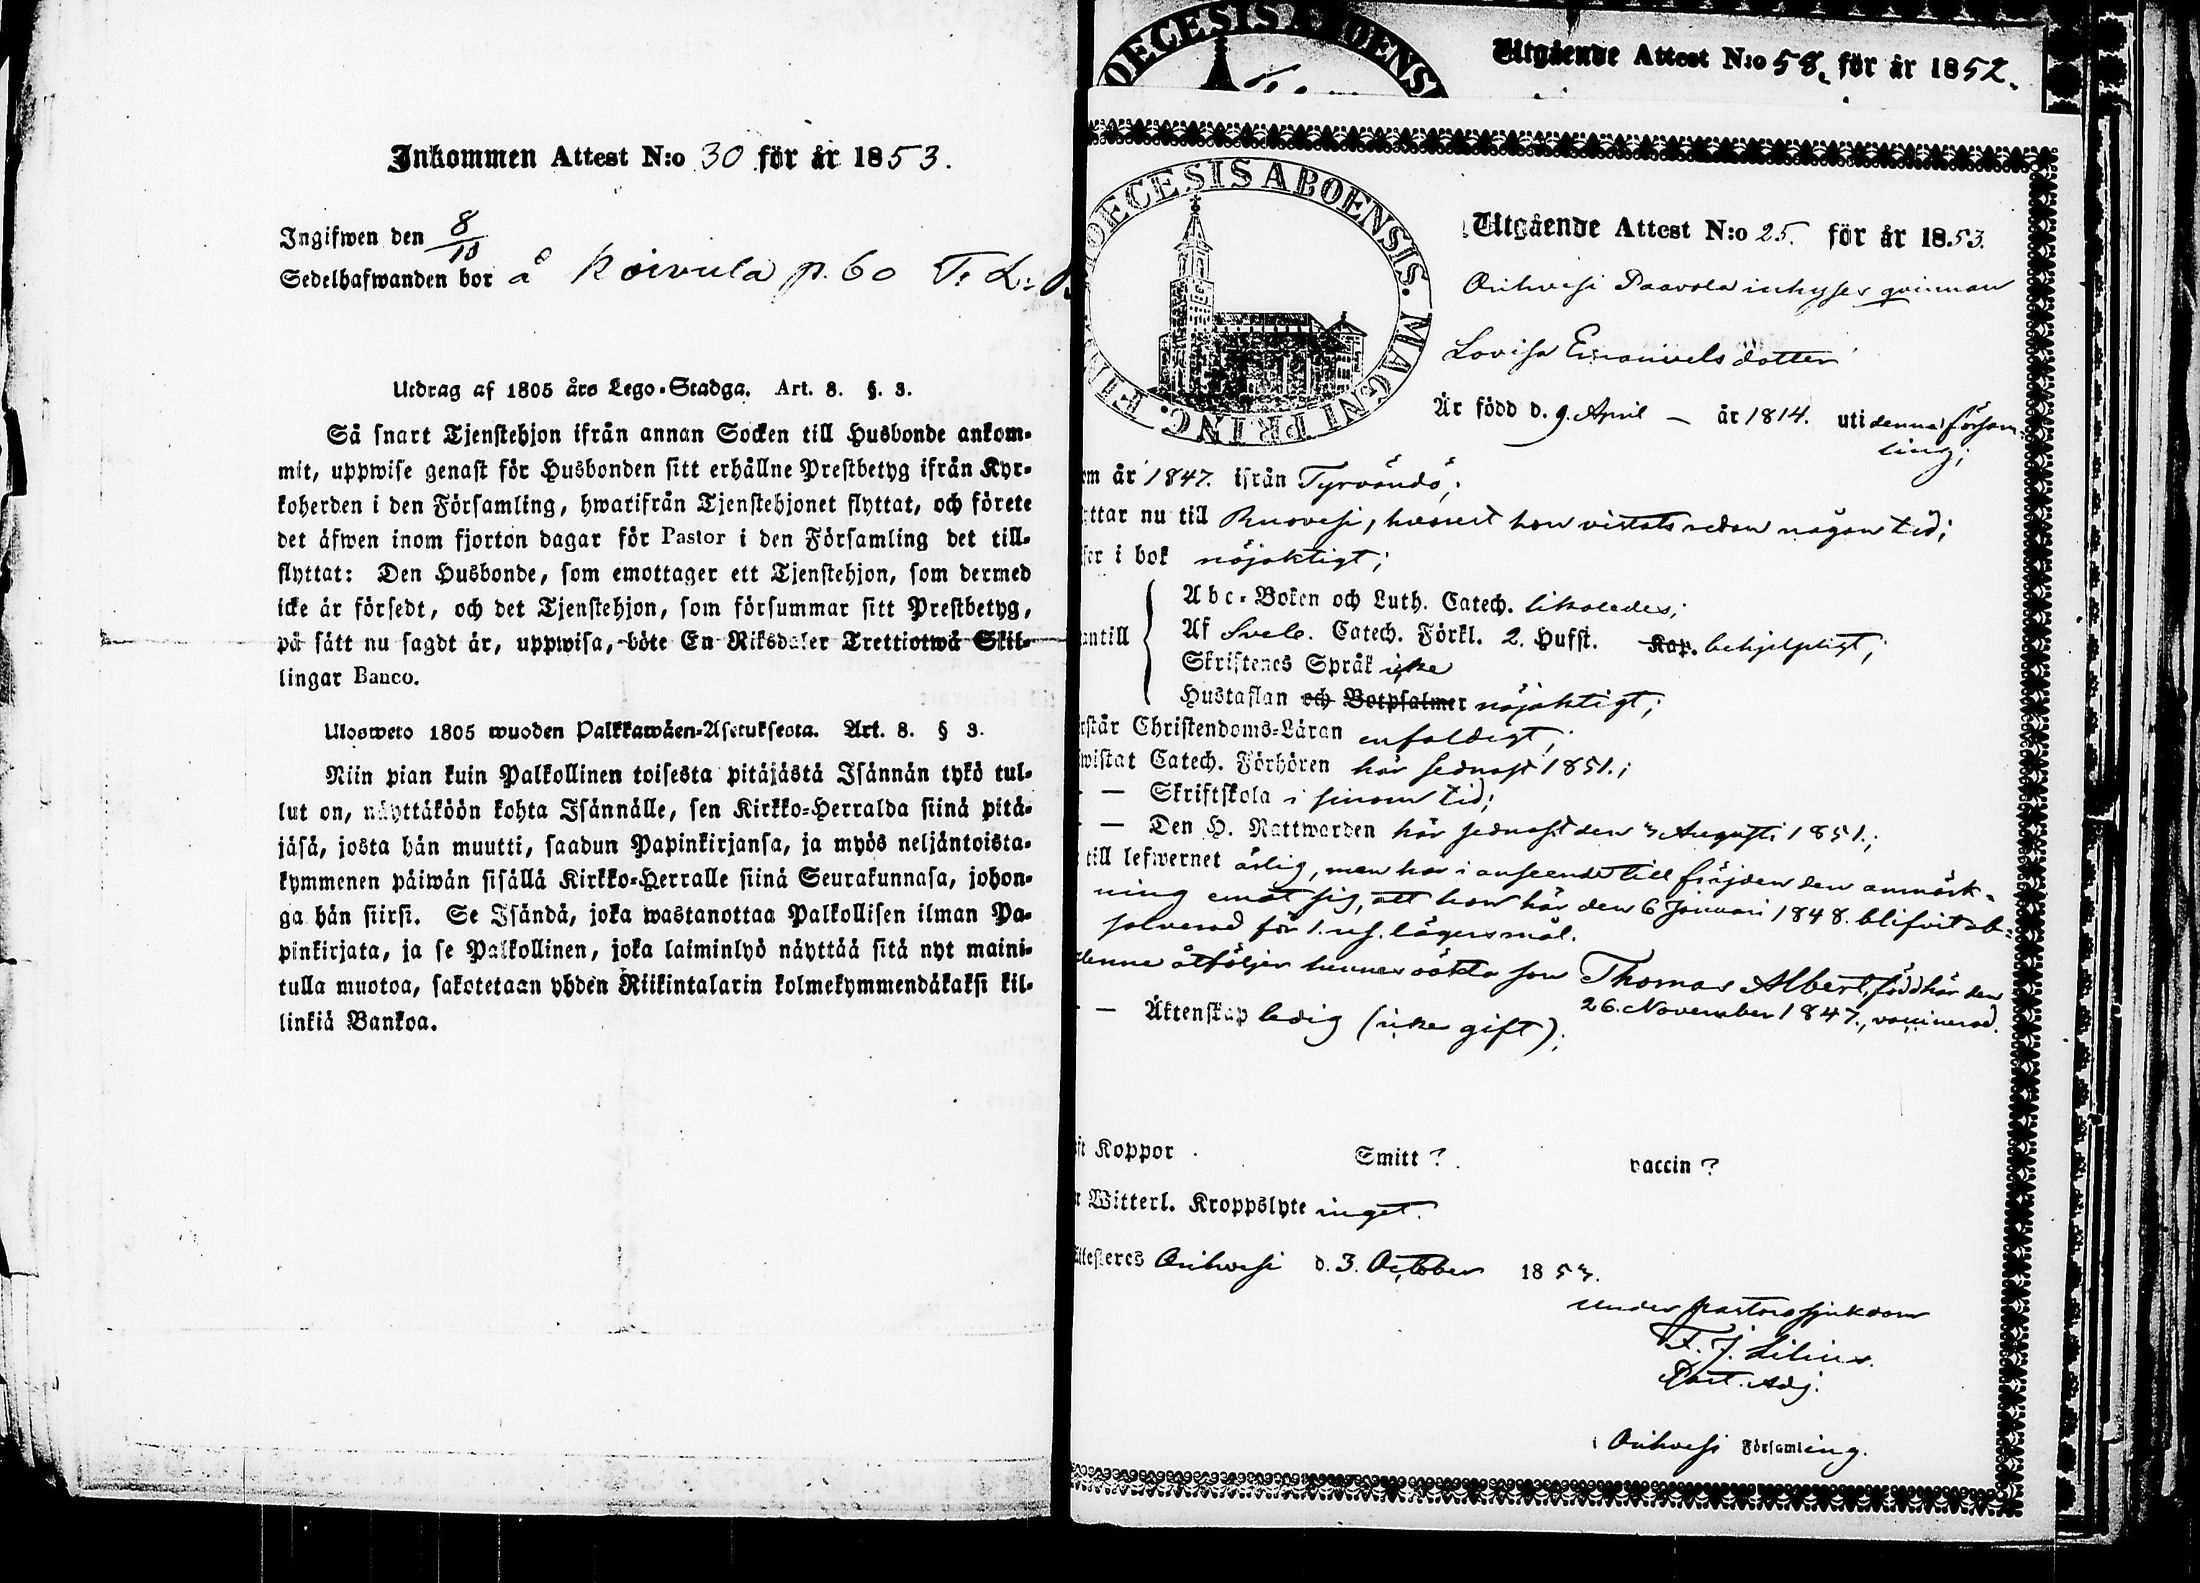 Inkommen Attest N:o 30 för år 1853.
Ingifwen den 8/10
Sedelhafwanden bor å Koivula p. 60 T. L:
Utdrag af 1805 års Lego-Stadga. Art. 8. §. 3.
Så snart Tjenstehjon ifrån annan Socken till Husbonde ankom-
mit, uppwise genast för Husbonden sitt erhållne Prestbetyg ifrån Kyr-
koherden i den Församling, hwarifrån Tjenstehjonet flyttat, och förete
det äfwen inom fjorton dagar för Pastor i den Församling det till-
flyttat: Den Husbonde, som emottager ett Tjenstehjon, som dermed
icke är försedt, och det Tjenstehjon, som försummar sitt Prestbetyg,
på sätt nu sagdt är, uppwisa, böte En Riksdaler Trettiotwå Skil-
lingar Banco.
Ulosweto 1805 wuoden Palkkawäen-Asetuksesta. Art. 8. § 3.
Niin pian kuin Palkollinen toisesta pitäjästä Isännän tykö tul-
lut on, näyttäköön kohta Isännälle, sen Kirkko-Herralda siinä pitä-
jäsä, josta hän muutti, saadun Papinkirjansa, ja myös neljäntoista-
kymmenen päiwän sisällä Kirkko-Herralle siinä Seurakunnasa, johon-
ga hän siirsi. Se Isändä, joka wastanottaa Palkollisen ilman Pa-
pinkirjata, ja se Palkollinen, joka laiminlyö näyttää sitä nyt maini-
tulla muotoa, sakotetaan yhden Riikintalarin kolmekymmendäkaksi kil-
linkiä Bankoa.
OECESIS ABOENS
Utgående Attest N:o 58. för år 1852.
OECESIS ABOENSIS. MAGNI PRINC. FI
Utgående Attest N:o 25. för år 1853.
Orihvesi Paavola inhyses qvinnan
Lovisa Emanuels dotter
Är född d. 9. April — år 1814. uti denna försam-
ling;
om år 1847. ifrån Tyrvändö;
ttar nu till Ruovesi, hvarest hon vistats redan någon tid;
ser i bok nöjaktigt;
antill
Abc-Boken och Luth. Catech. likaledes;
Af Sveb. Catech. Förkl. 2. Hufst. Kap. behjelpligt;
Skriftenes Språk icke
Hustaflan och Botpsalmer nöjaktigt;
rstår Christendoms-Läran enfaldigt;
wistat Catech. Förhören här sednast 1851.;
— Skriftskola i sinom tid;
— Den H. Nattwarden här sednast den 3 Augusti 1851.;
till lefwernet ärlig, men har i anseende till fräjden den anmärk-
ning emot sig, att hon här den 6 Januari 1848. blifvit ab-
solverad för 1. resa lägersmål.
denne åtföljer hennes oäkta son Thomas Albert, född här den
26. November 1847., vaccinerad.
— Äktenskap ledig (icke gift);
ft Koppor . Smitt ? . vaccin ?
r Witterl. Kroppslyte inget.
Attesteres Orihvesi d. 3. October 1853.
under pastors sjukdom
F. J. Lilius.
Past. Adj.
i Orihvesi Församling.